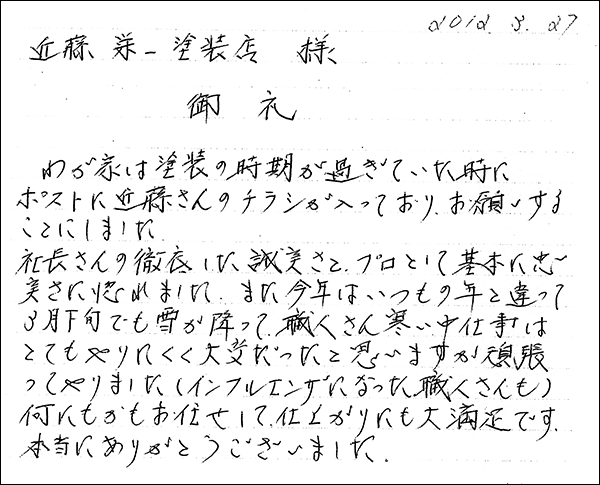 2012. 3. 27
近藤 栄一 塗装店 様
御 礼
わが家は塗装の時期が過ぎていた時に
ポストに近藤さんのチラシが入っており、お願いする
ことにしました
社長さんの徹底した誠実さと、プロとして基本に忠
実さに惚れました、また今年はいつもの年と違って
3月下旬でも雪が降って、職人さん寒い中仕事は
とてもやりにくく大変だったと思いますが頑張
ってやりました(インフルエンザになった職人さんも)
何にもかもお任せして、仕上がりにも大満足です、
本当にありがとうございました。